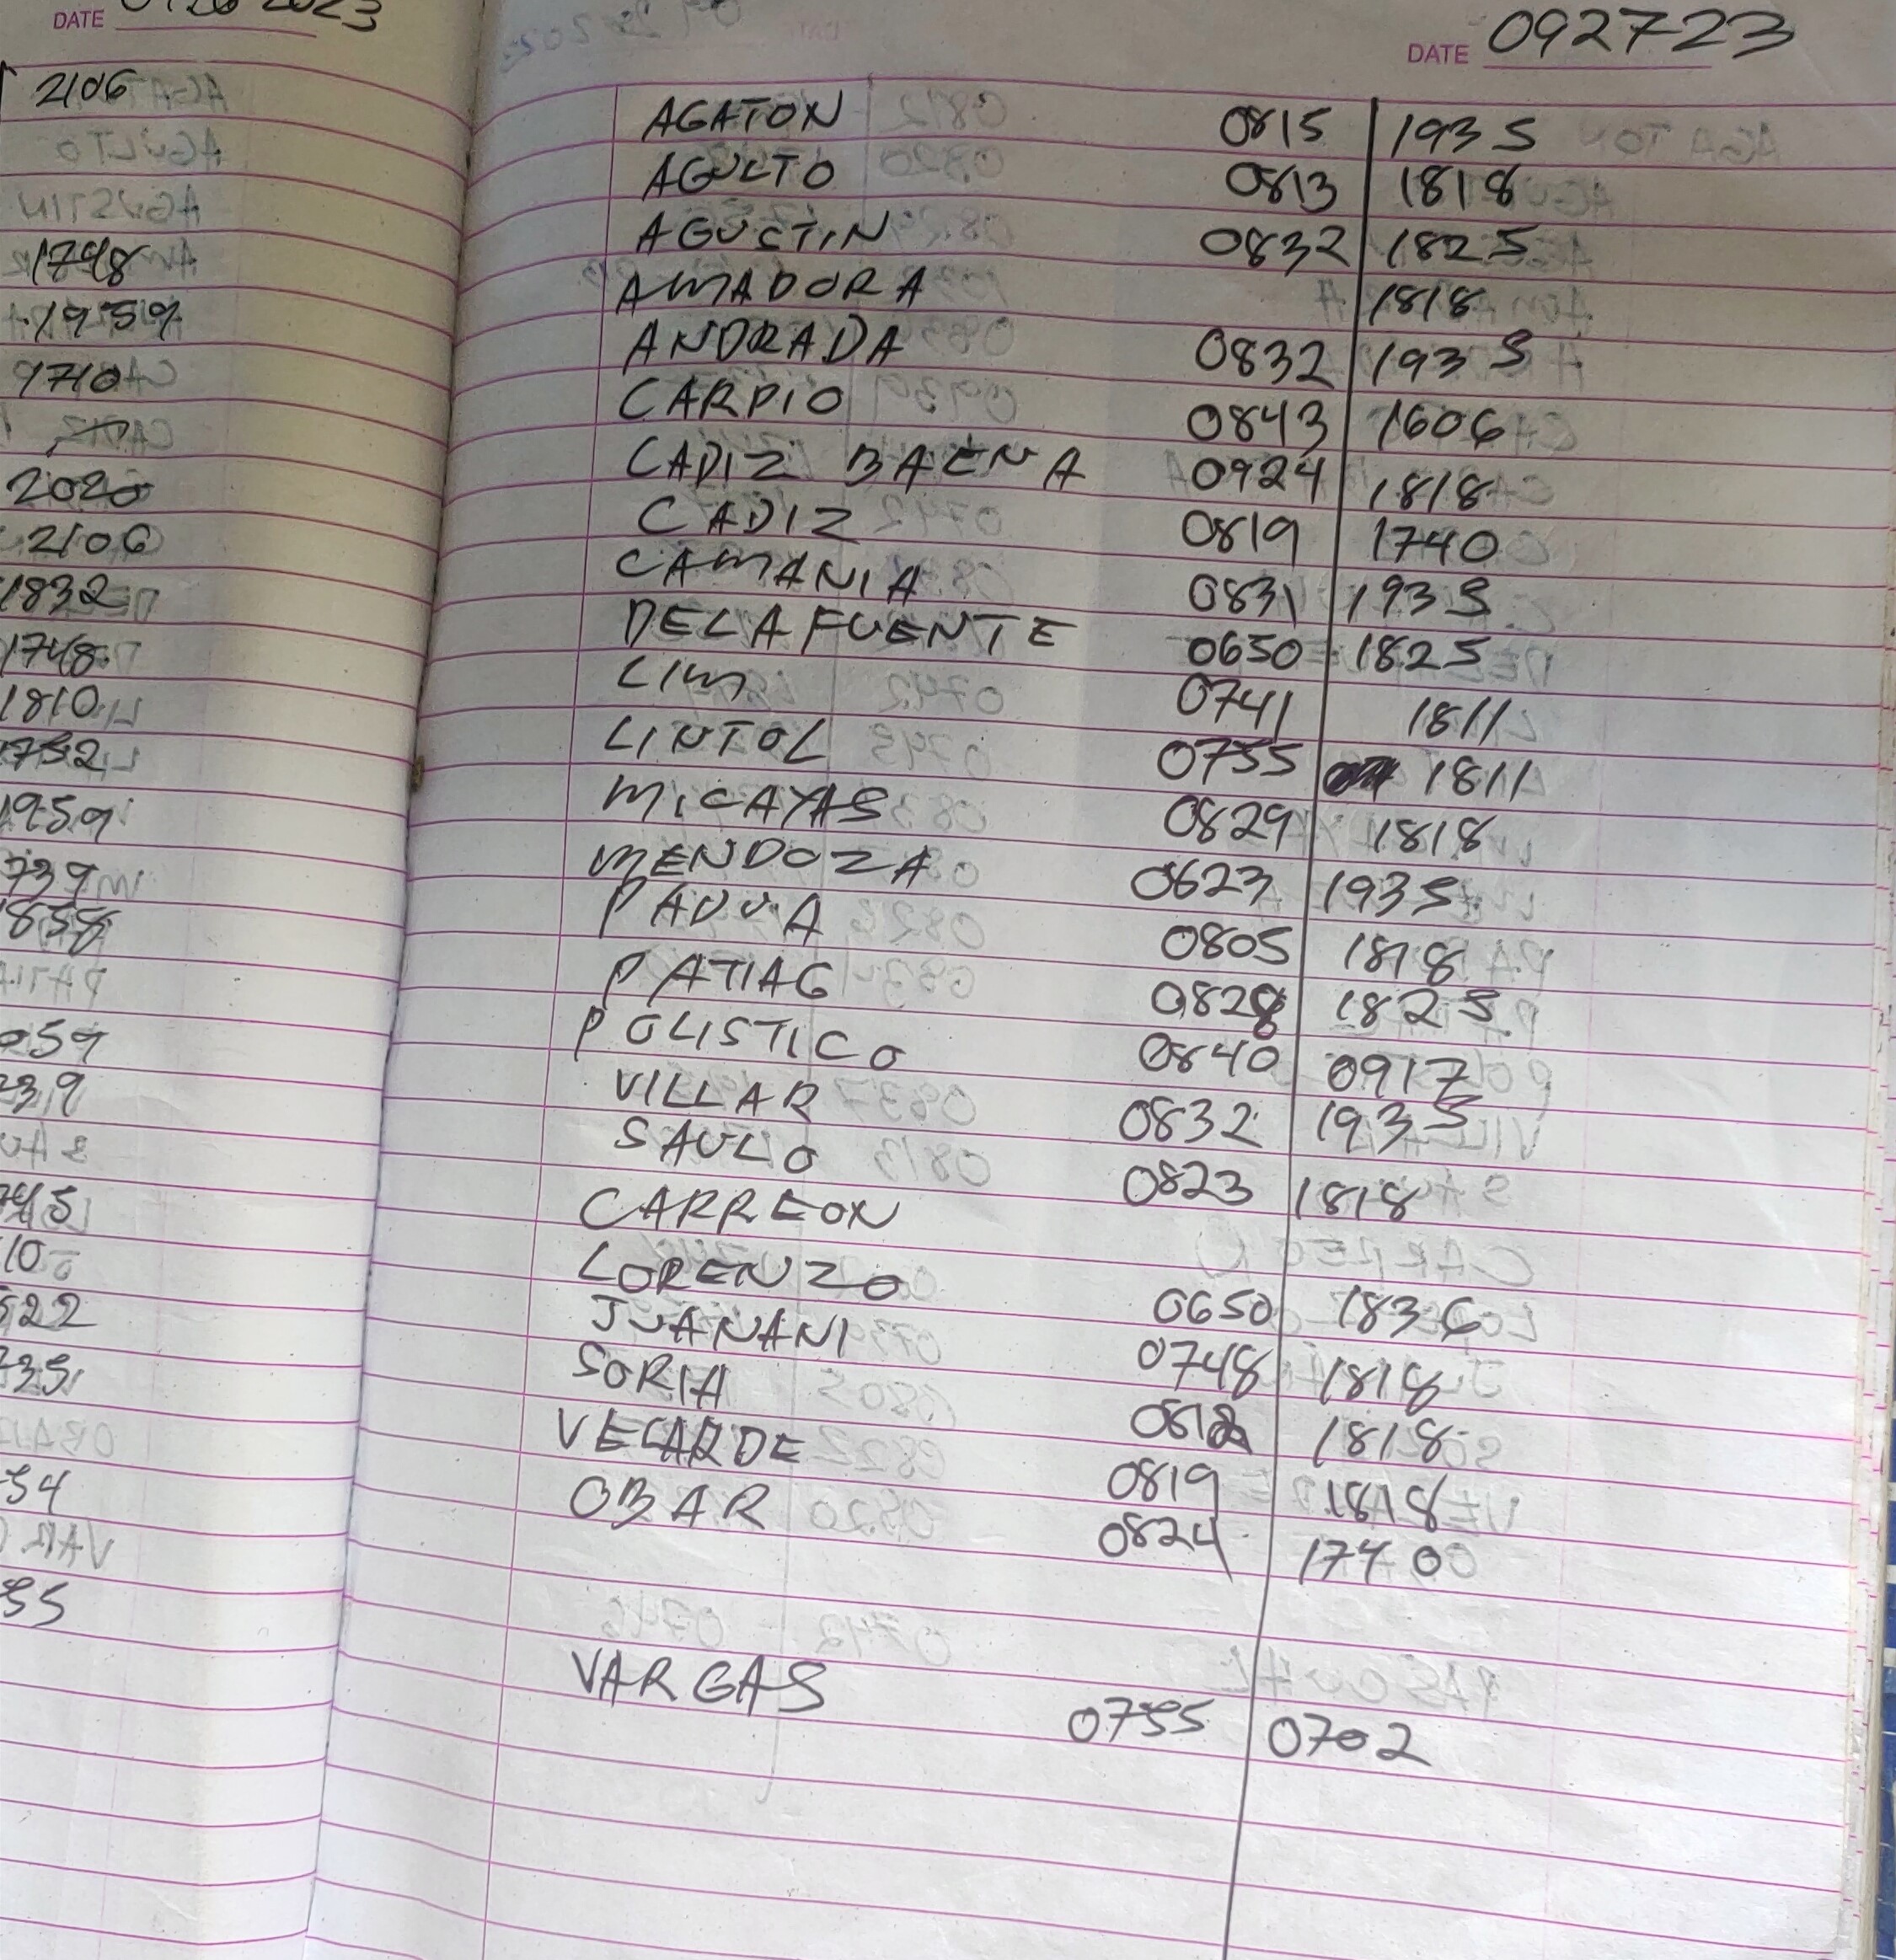 DATE
2106
1748
1959
1710
2020
2106
1832
1748
1810
1752
1959
739
858
059
239
745
10
522
235
54
55
DATE 092723
AGATON 0815 1935
AGULTO 0813 1818
AGUCTIN 0832 1825
AMADORA 1818
ANDRADA 0832 1935
CARPIO 0843 1606
CADIZ BAENA 0924 1818
CADIZ 0819 1740
CAMANIA 0831 1935
DELA FUENTE 0650 1825
LIM 0741 1811
LINTOL 0755 1811
MICAYAS 0829 1818
MENDOZA 0623 1935
PADUA 0805 1818
PATIAG 0828 1825
POLISTICO 0840 0917
VILLAR 0832 1935
SAULO 0823 1818
CARREON
LORENZO 0650 1836
JUANANI 0748 1818
SORIA 0812 1818
VELARDE 0819 1818
OBAR 0824 1740
VARGAS 0755 0702